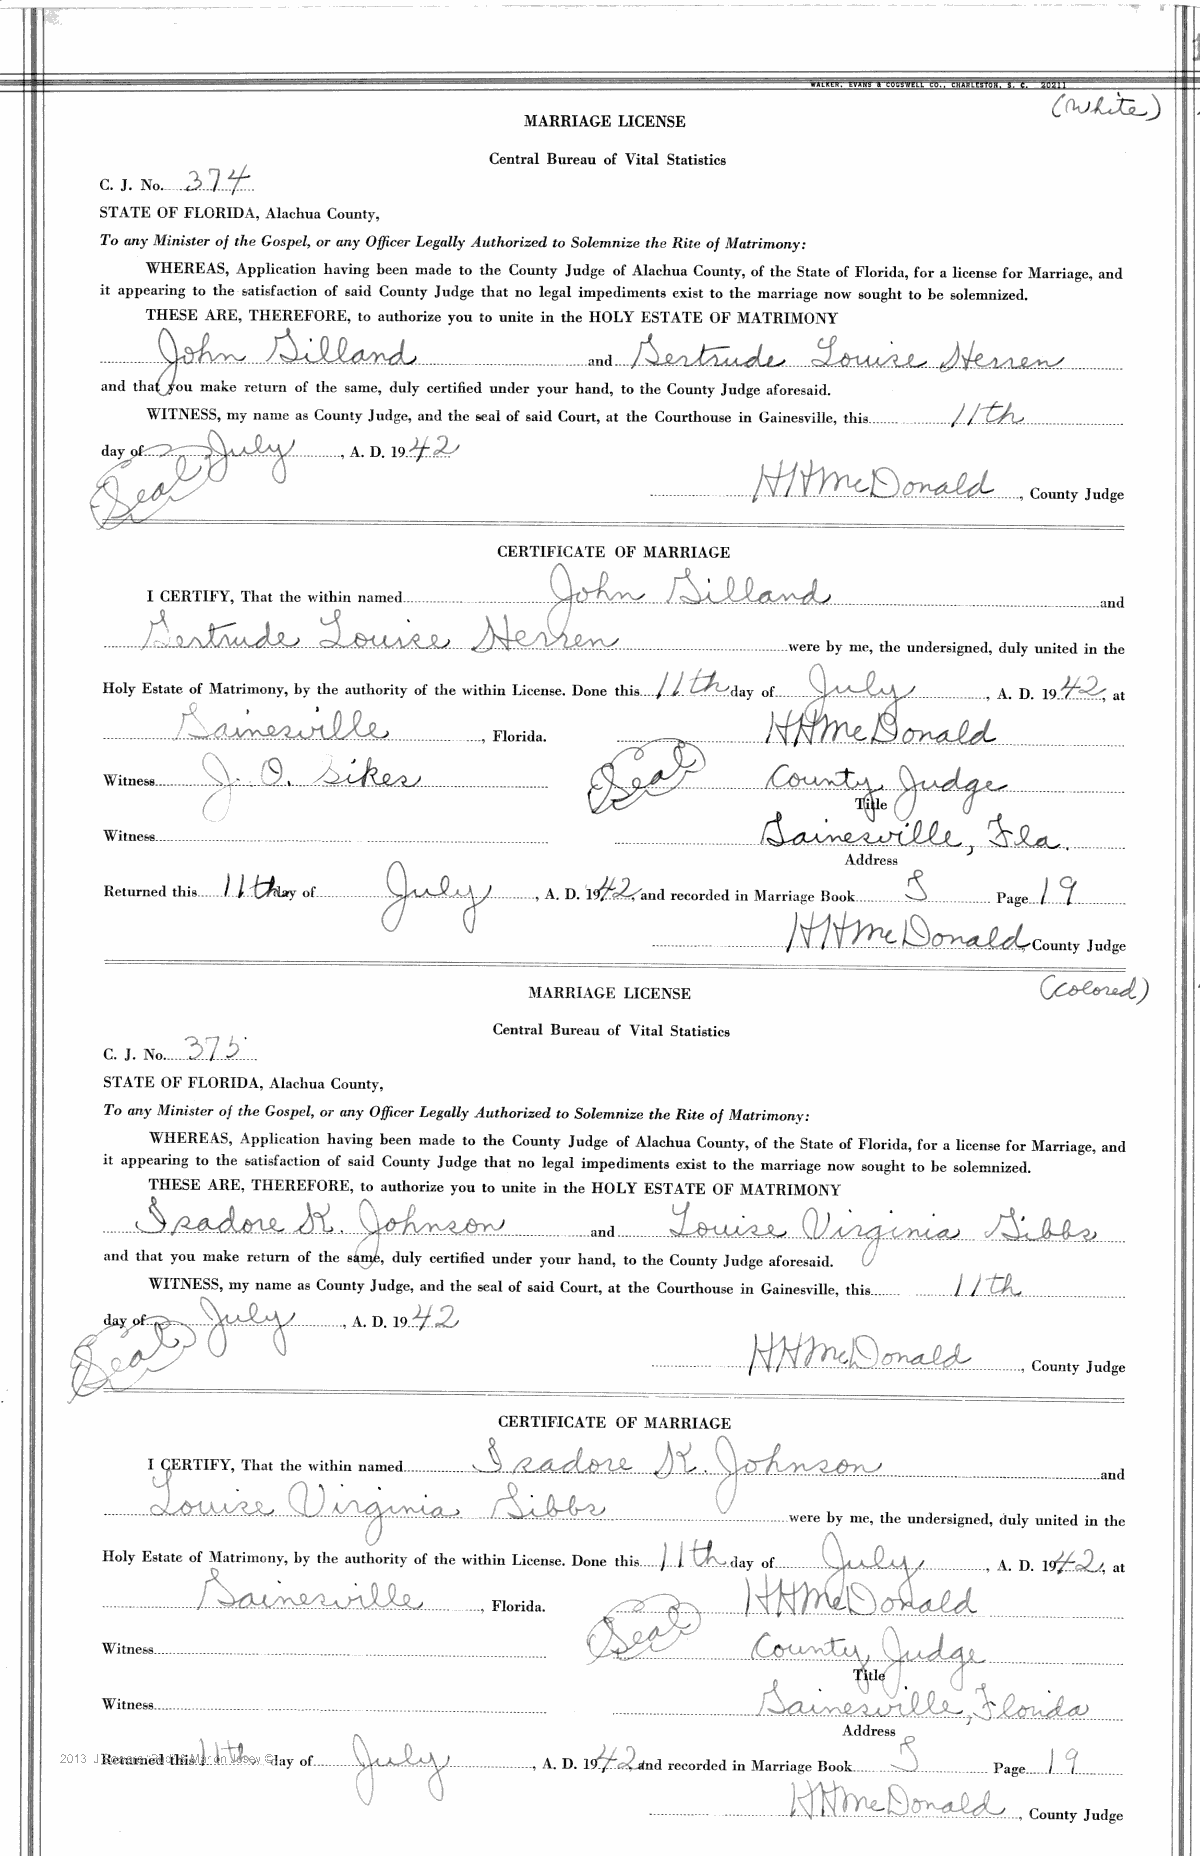 WALKER, EVANS & COGSWELL CO., CHARLESTON, S. C. 20211
(White)
MARRIAGE LICENSE
Central Bureau of Vital Statistics
C. J. No. 374
STATE OF FLORIDA, Alachua County,
To any Minister of the Gospel, or any Officer Legally Authorized to Solemnize the Rite of Matrimony:
WHEREAS, Application having been made to the County Judge of Alachua County, of the State of Florida, for a license for Marriage, and
it appearing to the satisfaction of said County Judge that no legal impediments exist to the marriage now sought to be solemnized.
THESE ARE, THEREFORE, to authorize you to unite in the HOLY ESTATE OF MATRIMONY
John Gilland and Gertrude Louise Herren
and that you make return of the same, duly certified under your hand, to the County Judge aforesaid.
WITNESS, my name as County Judge, and the seal of said Court, at the Courthouse in Gainesville, this 11th
day of July, A. D. 1942
Seal
HHMcDonald, County Judge
CERTIFICATE OF MARRIAGE
I CERTIFY, That the within named John Gilland and
Gertrude Louise Herren were by me, the undersigned, duly united in the
Holy Estate of Matrimony, by the authority of the within License. Done this 11th day of July, A. D. 1942, at
Gainesville, Florida. HHMcDonald
Witness J. O. Sikes Seal County Judge
Title
Witness Gainesville, Fla.
Address
Returned this 11th day of July, A. D. 1942, and recorded in Marriage Book S Page 19
HHMcDonald, County Judge
(Colored)
MARRIAGE LICENSE
Central Bureau of Vital Statistics
C. J. No. 375
STATE OF FLORIDA, Alachua County,
To any Minister of the Gospel, or any Officer Legally Authorized to Solemnize the Rite of Matrimony:
WHEREAS, Application having been made to the County Judge of Alachua County, of the State of Florida, for a license for Marriage, and
it appearing to the satisfaction of said County Judge that no legal impediments exist to the marriage now sought to be solemnized.
THESE ARE, THEREFORE, to authorize you to unite in the HOLY ESTATE OF MATRIMONY
Isadore K. Johnson and Louise Virginia Gibbs
and that you make return of the same, duly certified under your hand, to the County Judge aforesaid.
WITNESS, my name as County Judge, and the seal of said Court, at the Courthouse in Gainesville, this 11th
day of July, A. D. 1942
Seal
HHMcDonald, County Judge
CERTIFICATE OF MARRIAGE
I CERTIFY, That the within named Isadore K. Johnson and
Louise Virginia Gibbs were by me, the undersigned, duly united in the
Holy Estate of Matrimony, by the authority of the within License. Done this 11th day of July, A. D. 1942, at
Gainesville, Florida. HHMcDonald
Witness Seal County Judge
Title
Witness Gainesville, Florida
Address
Returned this 11th day of July, A. D. 1942 and recorded in Marriage Book S Page 19
2013
HHMcDonald, County Judge